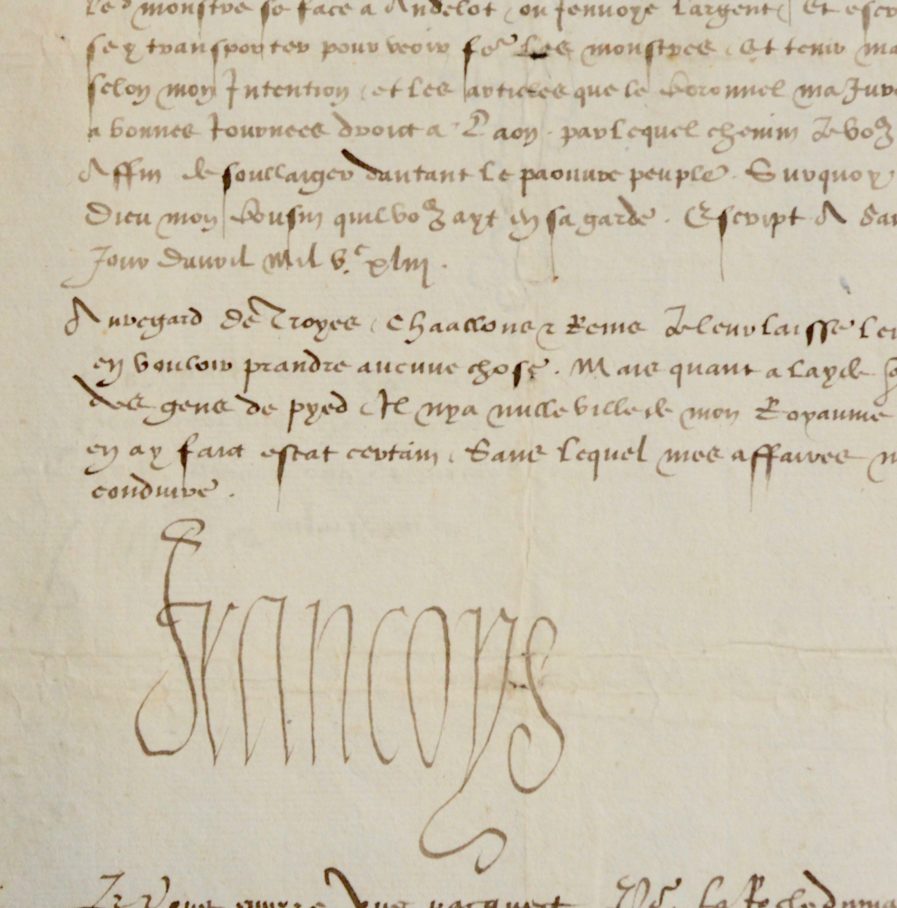 monstre se face a Andelot ou jenvoye largent Et
se y transporter pour veoir les monstres Et tenir
selon mon Intention et les articles que le Coronnel ma
a bonnes Journees droict a Laon par lequel chemin Je voz
Affin de soullaiger dautant le paouvre peuple. Surquoy
Dieu mon Cousin quil voz ayt en sa garde. Escript A
Jour davril Mil Vc xliij.
Au regard de Troyes, Chaallons & Reims Je leur laisse
en vouloir prandre aucune chose. Mais quant a layde
des gens de pyed Il nya nulle ville de mon Royaume
en ay faict estat certain, Sans lequel mes affaires
conduire.
Francoys